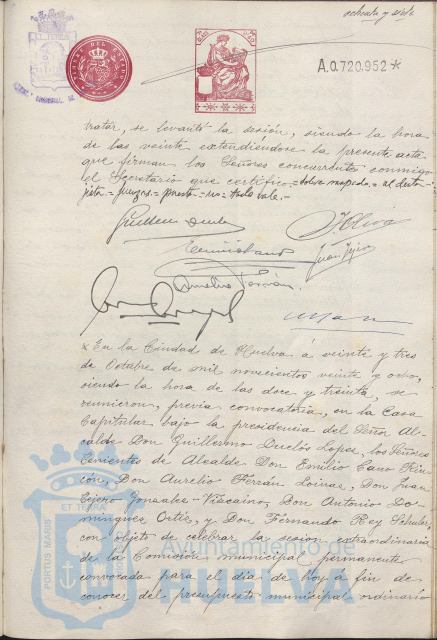 ochenta y siete
A.0.720.952*
tratar, se levantó la sesión, siendo la hora
de las veinte extendiéndose la presente acta
que firman los Señores concurrentes conmigo
el Secretario que certifico
vale.-
En la Ciudad de Huelva á veinte y tres
de Octubre de mil novecientos veinte y ocho,
siendo la hora de las doce y treinta, se
reunieron, previa convocatoria, en la Casa
Capitular bajo la presidencia del Señor Al-
calde Don Guillermo Duclós Lopez, los Señores
Tenientes de Alcalde Don Emilio Cano Rin-
cón, Don Aurelio Ferrán Loinaz, Don Juan
Tejero Gonzalez-Vizcaino, Don Antonio Do-
minguez Ortiz, y Don Fernando Rey Schuler,
con objeto de celebrar la sesion extraordinaria
de la Comisión municipal permanente
convocada para el dia de hoy á fin de
conocer del presupuesto municipal ordinario
ET TERRA
PORTUS MARIS
Ayuntamiento de
HUELVA